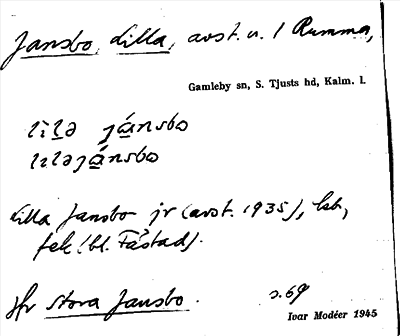 Jansbo, Lilla, avst. u. 1 Rumma,
Gamleby sn, S. Tjusts hd, Kalm. l.
lìlə jánsbo
lɩləjánsbo
Lilla Jansbo jr (avst. 1935), lsb,
fek (bl. Fåstad).
Jfr Stora Jansbo.
s. 69
Ivar Modéer 1945